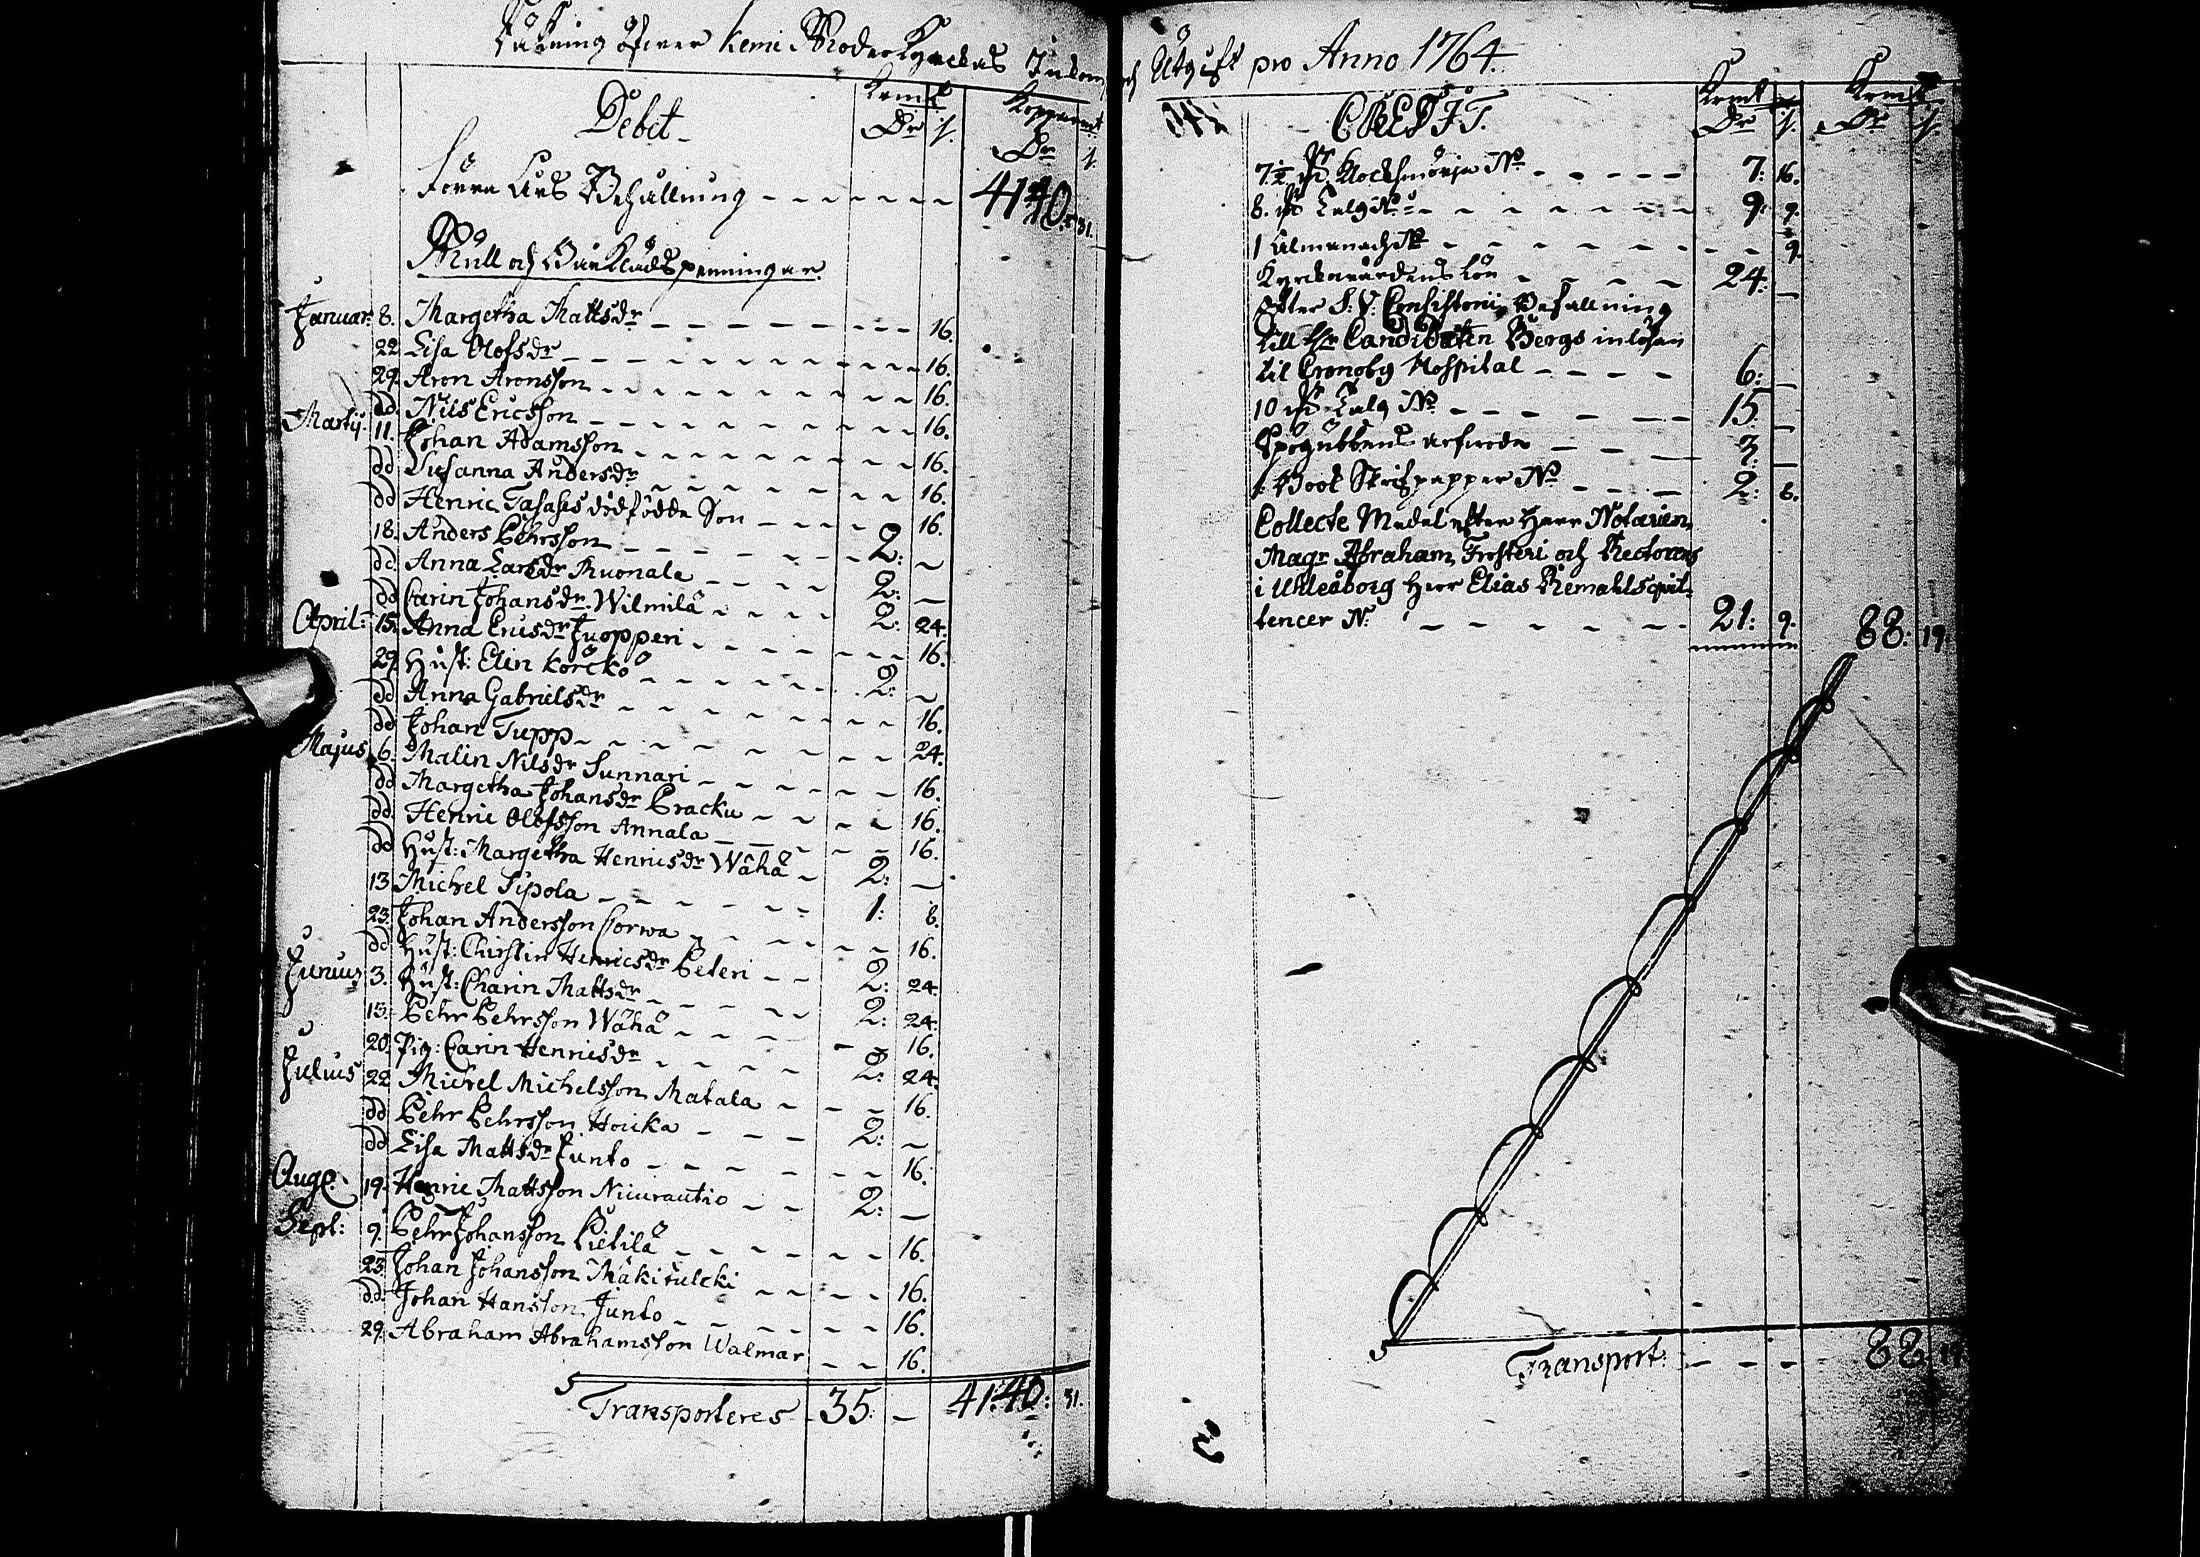 Räkning öfwer Kemi Moder Kyrckas Inkom
Debit
Kopparmt
Dr
Förra Års Behållning 4140: 31.
Mull och Bårklädspenningar
Januar: 8. Margetha Mattsdr 16.
22 Lisa Olofsdr 16.
29. Aron Aronsson 16.
dd. Nils Ericsson 16.
Martij. 11. Johan Adamsson 16.
dd Susanna Andersdr 16.
dd Henric Tasases dödfödde Son 16.
18. Anders Pehrsson 2: —
dd. Anna Larsdr Ruonala 2: —
dd Carin Johansdr Wilmilä 2: 24.
April: 15. Anna Ericsdr Juopperi 16.
29. Hust: Elin Körckö 2: —
dd Anna Gabrielsdr 16.
dd Johan Tupp 24.
Majus 6. Malin Nilsdr Sunnari 16.
dd Margetha Johansdr Pracku 16.
dd Henric Olofsson Annala 16.
dd Hust: Margetha Henricsdr Wähä 2: —
13 Michel Sipola 1: 8.
23. Johan Andersson Corwa 16.
dd Hust: Christin Henricsdr Peteri 2: 24.
Junius 3. Hust: Charin Mattsdr 2: 24.
13. Pehr Pehrsson Wähä 16.
20. Pig: Carin Henricsdr 2: 24.
Julius 22 Michel Michelsson Matala 16.
dd Pehr Pehrsson Houka 2: —
dd Lisa Mattsdr Junto 16.
Aug. 19. Henric Mattsson Niurautio 2: —
Sept: 9. Pehr Johansson Pietilä 16.
23. Johan Johansson Mäkitulcki 16.
dd: Johan Hansson Junto 16.
29. Abraham Abrahamsson Walmar 16.
Transporteres 35: — 41:40: 31.
och Utgift pro Anno 1764.
CREDIT.
7½ Klocksmörja No 7: 16.
6. Talg No 9: 9.
1 Almanach No 9.
Kyrckowärdens Lön 24: —
Efter S: V: Consistorii Befallning
till Hr Candidaten Bergs inlösen
Til Cronoby Hospital 6: —
10 Talg No 15. —
Spögubbens arfwode 3: —
1 Book Skrifpapper No 2: 8.
Collecte Medel efter Herr Notarien
Magr Abraham Frosteri och Rectorens
i Uhleåborg Herr Elias Remahls quit-
tencer No 21: 9. 88: 19.
Transport: 88: 19.